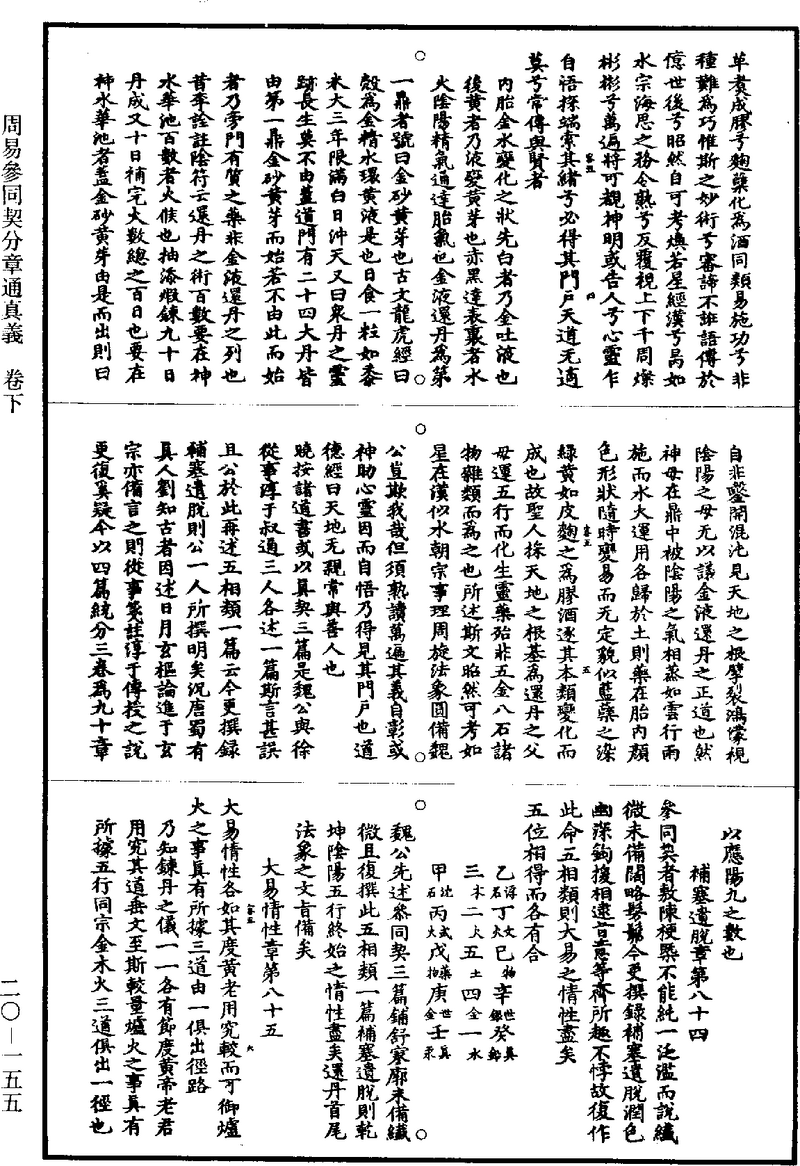 周易參同契分章通真義　卷下
二〇—一五五
革煑成膠兮麴櫱化爲酒同類易施功兮非
種難爲巧惟斯之妙術兮審諦不誑語傳於
億世後兮昭然自可考煥若星經漢兮昺如
水宗海思之務令熟兮反覆視上下千周燦
彬彬兮萬遍將可覩神明或告人兮心靈乍
自悟探端索其緒兮必得其門戶天道无適
莫兮常傳與賢者
内胎金水變化之狀先白者乃金吐液也
後黄者乃液變黄芽也亦黑達表裏者水
火陰陽精氣通達胎氣也金液還丹爲第
一鼎者號曰金砂黄芽也古文龍虎經曰
殻爲金精水環黄液是也日食一粒如黍
米大三年限滿白日沖天又曰衆丹之靈
跡長生莫不由葢道門有二十四大丹皆
由第一鼎金砂黄芽而始若不由此而始
者乃旁門有質之藥非金液還丹之列也
昔李詮註陰符云還丹之術百數要在神
水華池百數者火候也抽添煅鍊九十日
丹成又十日補完火數總之百日也要在
神水華池者葢金砂黄芽由是而出則曰
自非鑿開混沌見天地之根擘裂鴻濛視
陰陽之母无以議金液還丹之正道也然
神母在鼎中被陰陽之氣相蒸如雲行雨
施而水火運用各歸於土則藥在胎内顔
色形狀隨時變易而无定貌似藍蘂之染
緑黄如皮麴之爲膠酒逐其本類變化而
成也故聖人採天地之根基爲還丹之父
母運五行而化生靈藥殆非五金八石諸
物雜類而爲之也所述斯文昭然可考如
星在漢似水朝宗事理周旋法象圓備魏
公豈欺我哉但須熟讀萬遍其義自彰或
神助心靈因而自悟乃得見其門戶也道
德經曰天地无親常與善人也
曉按諸道書或以真契三篇是魏公與徐
從事淳于叔通三人各述一篇斯言甚誤
且公於此再述五相類一篇云今更撰録
補塞遺脫則公一人所撰明矣況唐蜀有
真人劉知古者因述日月玄樞論進于玄
宗亦備言之則從事箋註淳于傳授之說
更復奚疑今以四篇統分三卷爲九十章
以應陽九之數也
補塞遺脫章第八十四
參同契者敷陳梗槩不能純一泛濫而說纖
微未備闊略髣髴今更撰録補塞遺脫潤色
幽深鉤援相逮旨意等齊所趣不悖故復作
此命五相類則大易之情性盡矣
五位相得而各有合
乙浮石丁文火己物辛世銀癸真鉛
三木二火五土四金一水
甲沈石丙武火戊藥物庚世金壬真汞
魏公先述叅同契三篇鋪舒寥廓未備纖
微且復撰此五相類一篇補塞遺脫則乾
坤陰陽五行終始之情性盡矣還丹首尾
法象之文旨備矣
大易情性章第八十五
大易情性各如其度黄老用究較而可御爐
火之事真有所據三道由一俱出徑路
乃知鍊丹之儀一一各有節度黄帝老君
用究其道垂文至斯較量爐火之事真有
所據五行同宗金木火三道俱出一徑也